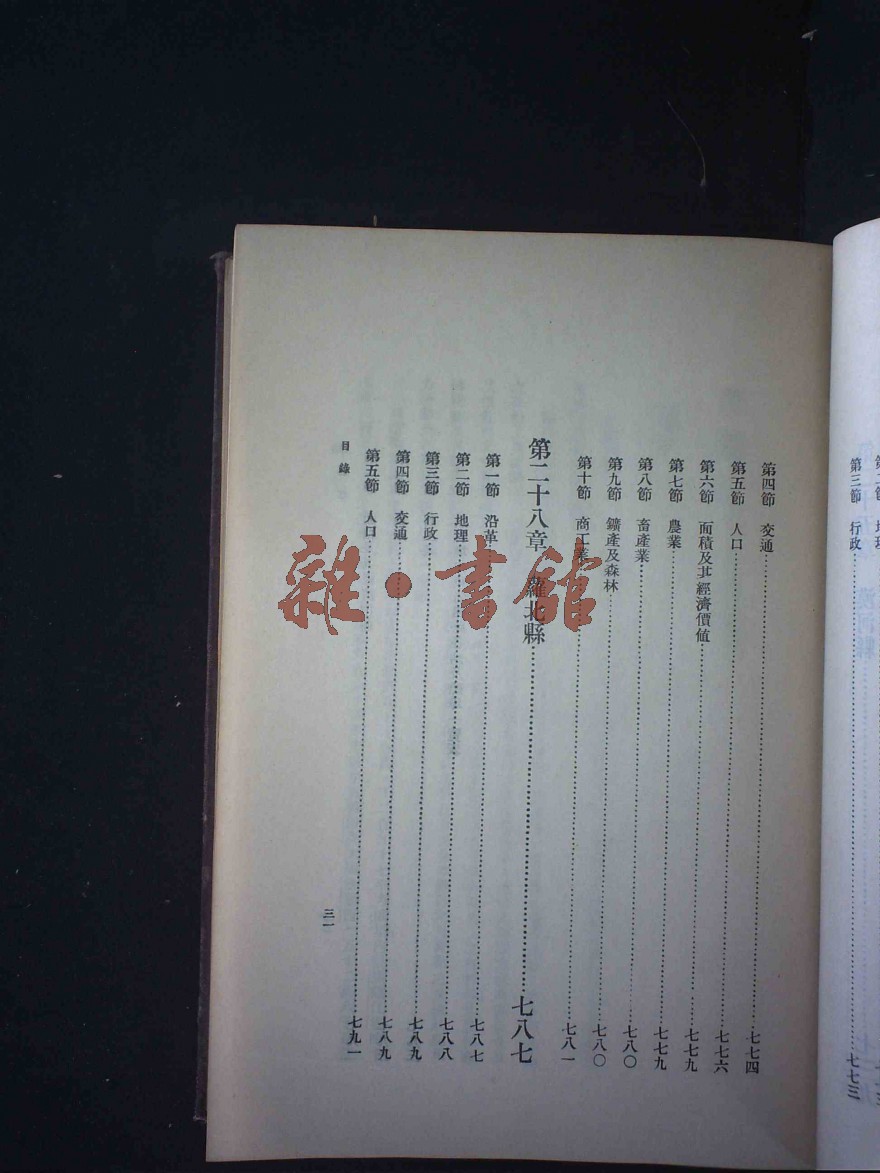 第二節 地理
第三節 行政……七七三
第四節 交通……七七四
第五節 人口……七七六
第六節 面積及其經濟價値……七七九
第七節 農業……七七九
第八節 畜產業……七八〇
第九節 鑛產及森林……七八〇
第十節 商工業……七八一
第二十八章 蘿北縣……七八七
第一節 沿革……七八七
第二節 地理……七八八
第三節 行政……七八九
第四節 交通……七八九
第五節 人口……七九一
目錄
三一
雜·書館